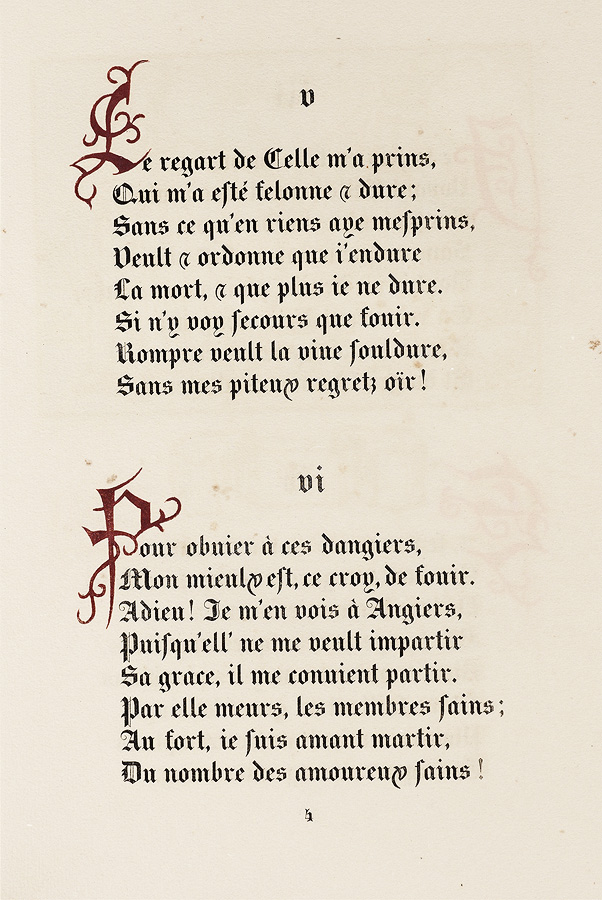 v
Le regart de Celle m'a prins,
Qui m'a eſté felonne ⁊ dure;
Sans ce qu'en riens aye meſprins,
Veult ⁊ ordonne que i'endure
La mort, ⁊ que plus ie ne dure.
Si n'y voy ſecours que fouir.
Rompre veult la viue ſouldure,
Sans mes piteux regretz oïr!
vi
Pour obuier à ces dangiers,
Mon mieulx eſt, ce croy, de fouir.
Adieu! Je m'en vois à Angiers,
Puiſqu'ell' ne me veult impartir
Sa grace, il me conuient partir.
Par elle meurs, les membres ſains;
Au fort, ie ſuis amant martir,
Du nombre des amoureux ſains!
4